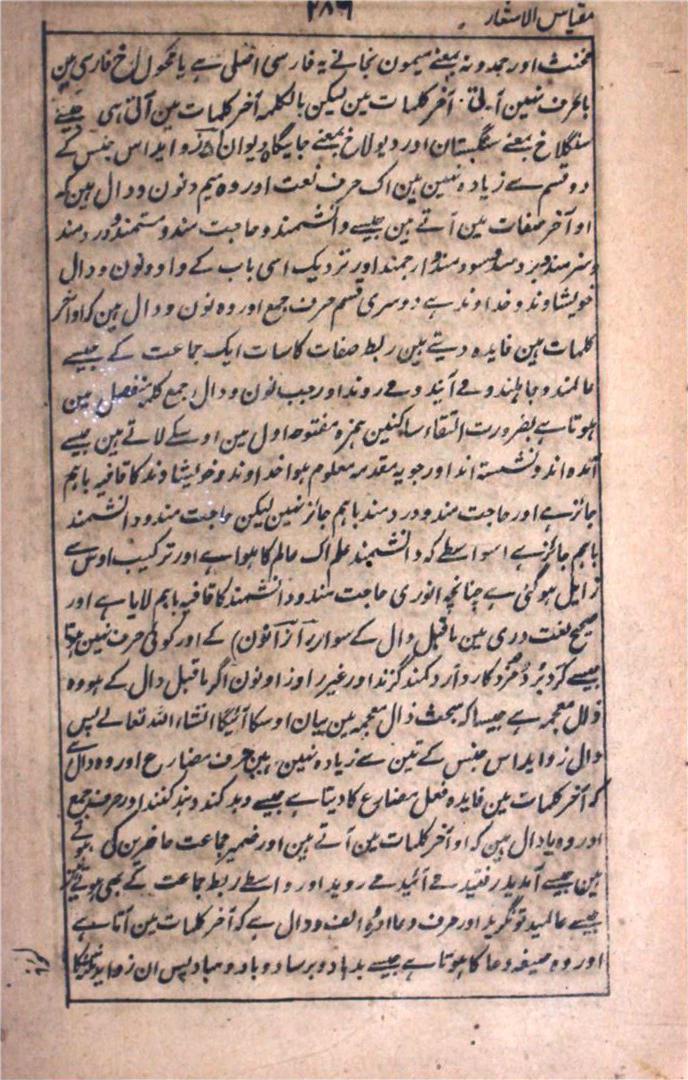 مقیاس الاشعار
۲۸۶
مخنث اور حمدونہ بمعنے میمون نجانے یہ فارسی اصلی ہے یا مجہول اخ فارسی مین
با حرف نہین آتی آخر کلمات مین لیکن بالکلمہ آخر کلمات مین آتی ہی جیسے
سنگلاخ بمعنے سنگستان اور دیولاخ بمعنے جایگاہ دیوان زواید اس جنس کے
دو قسم سے زیادہ نہین ہین اک حرف نعت اور وہ میم و نون و دال ہین کہ
او آخر صفات مین آتے ہین جیسے دانشمند و حاجت مند و مستمند و درد مند
و سود مند و ارجمند اور نزدیک اسی باب کے واو و نون و دال
خویشاوند و خداوند ہے دوسری قسم حرف جمع اور وہ نون و دال ہین کہ اواخر
کلمات مین فایدہ دیتے ہین ربط صفات کا سات ایک جماعت کے جیسے
عالمند و جاہلند و مے آیند و مے روند اور جب نون و دال جمع کلمہ منفصل مین
ہوتا ہے بضرورت التقاء ساکنین ہمزہ مفتوحہ اول مین اوسکے لاتے ہین جیسے
آمدہ اند و نشستہ اند اور جو یہ مقدمہ معلوم ہوا خداوند و خویشاوند کا قافیہ باہم
جائز ہے اور حاجت مند و درد مند باہم جائز نہین لیکن حاجت مند و دانشمند
باہم جائز ہے اسواسطے کہ دانشمند علم اک عالم کا ہوا ہے اور ترکیب اوس سے
زایل ہو گئی ہے چنانچہ انوری حاجت مند و دانشمند کا قافیہ باہم لایا ہے اور
صحیح لغت دری مین ماقبل دال کے سوا را زا نون کے اور کوئی حرف نہین ہوتا
جیسے کرد برد دزد کارد آرد کمند گزند اور غیر را و زا و نون اگر ماقبل دال کے ہو وہ
ذال معجمہ ہے جیسا کہ مبحث ذال معجمہ مین بیان اوسکا آئیگا انشاء اللہ تعالے پس
دال زواید اس جنس کے تین سے زیادہ نہین ہین حرف مضارع اور وہ دال ہے
کہ آخر کلمات مین فایدہ فعل مضارع کا دیتا ہے جیسے دہد کند دہند کنند اور حرف جمع
اور وہ یا دال ہین کہ او آخر کلمات مین آتے ہین اور ضمیر جماعت حاضرین کی ہوتے
ہین جیسے آمدید رفتید مے آئید مے روید اور واسطے ربط جماعت کے بھی ہوتے ہین
جیسے عالمید تونگرید اور حرف دعا اور وہ الف و دال ہے کہ آخر کلمات مین آتا ہے
اور وہ صیغہ دعا کا ہوتا ہے جیسے بدہاد و برساد و باد و مباد پس ان زواید